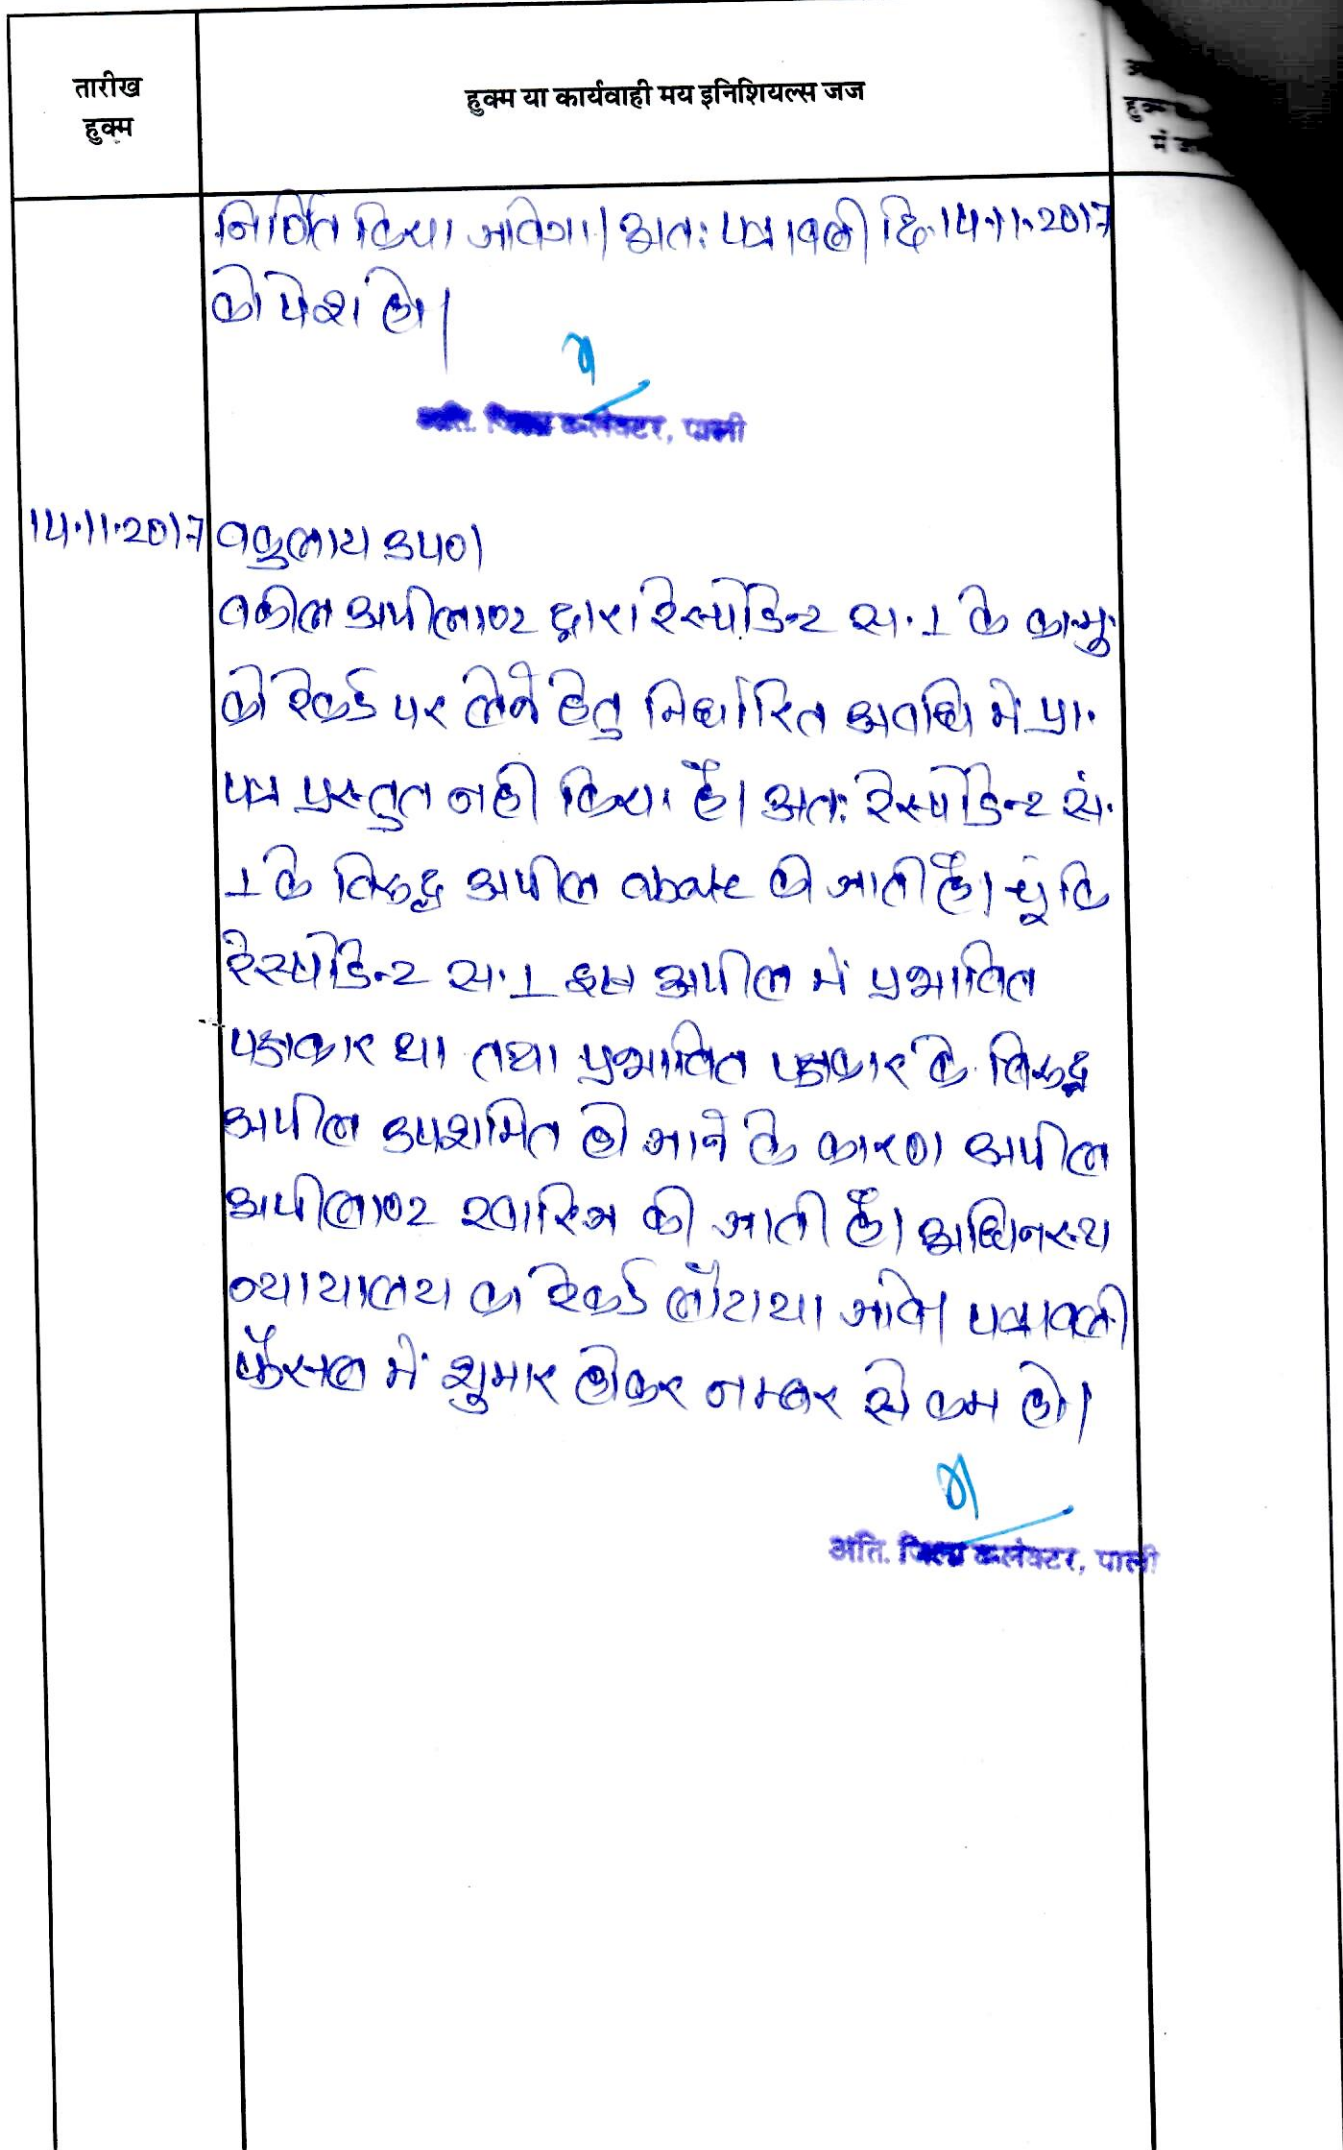 तारीख
हुक्म
हुक्म या कार्यवाही मय इनिशियल्स जज
हुक्म
में
निर्णित किया जावेगा। अतः पत्रावली दि. 14.11.2017
को पेश हो।
अति. जिला कलेक्टर, पाली
14.11.2017
वकुलाय उप०।
वकील अपीलाण्ट द्वारा रेस्पोडेन्ट स. 1 के का.मु.
को रेकर्ड पर लेने हेतु निर्धारित अवधि मे प्रा.
पत्र प्रस्तुत नही किया है। अतः रेस्पोडेन्ट सं.
1 के विरूद्ध अपील abate की जाती है। चूंकि
रेस्पोडेन्ट स. 1 इस अपील में प्रभावित
पक्षकार था तथा प्रभावित पक्षकार के विरूद्ध
अपील उपशमित हो जाने के कारण अपील
अपीलाण्ट खारिज की जाती है। अधिनस्थ
न्यायालय का रेकर्ड लौटाया जावे। पत्रावली
फैसल में शुमार होकर नम्बर से कम हो।
अति. जिला कलेक्टर, पाली